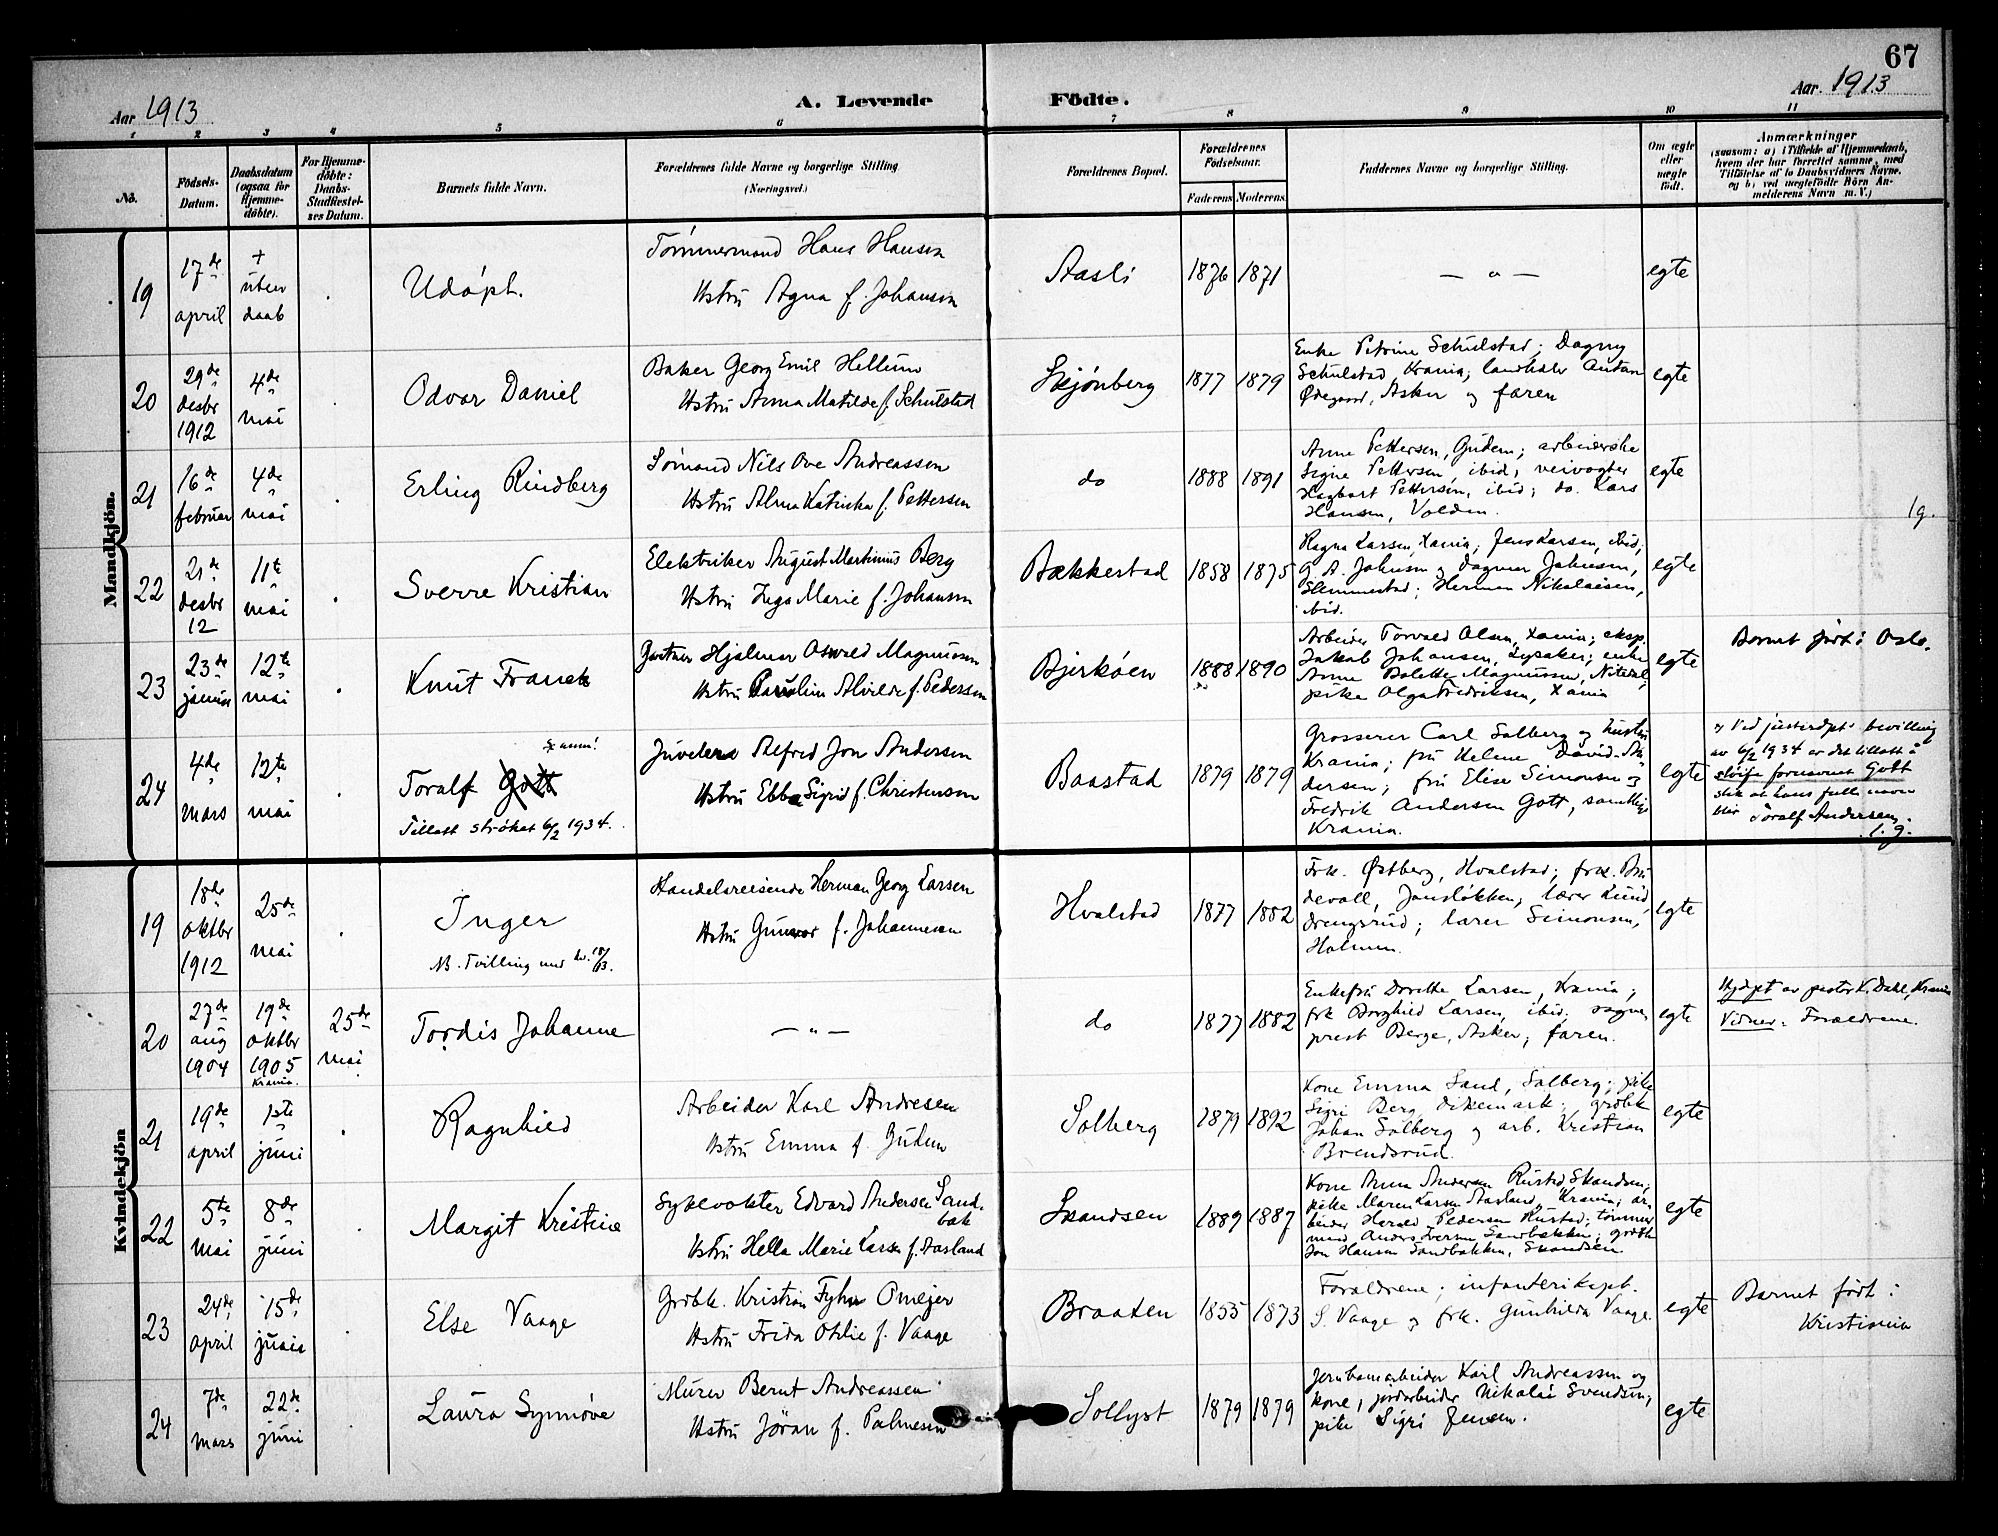 67
Aar 1913
A. Levende Födte.
Aar. 1913
1 2 3 4 5 6 7 8 9 10 11
No.
Födsels-
Datum.
Daabsdatum
(ogsaa for
Hjemme-
döbte).
For Hjemme-
döbte:
Daabs-
Stadfæstel-
ses Datum.
Barnets fulde Navn.
Forældrenes fulde Navne og borgerlige Stilling
(Næringsvei.)
Forældrenes Bopæl.
Forældrenes
Födselsaar.
Faderens Moderens
Faddernes Navne og borgerlige Stilling.
Om ægte
eller
uægte
födt.
Anmærkninger
(saasom: a) i Tilfælde af Hjemmedaab,
hvem der har forrettet samme, med
Tilföielse af to Daabsvidners Navne.
og b) ved uægtefödte Börn An-
melderens Navn m. V.)
Mandkjön.
19
17de
april
+
uten
daab
Udøpt.
Tømmermand Hans Hansen
Hstru Agna f. Johansen
Aasli
1876 1871
— " —
egte
20
29de
desbr
1912
4de
mai
Odvar Daniel
Baker Georg Emil Hellum
Hstru Anna Matilde f. Schulstad
Skjønberg
1877 1879
Enke Petrine Schulstad; Dagny
Schulstad, Krania; landhdler Anton
Ødegaard, Asker og faren
egte
21
16de
februar
4de
mai
Erling Rindberg
Sømand Nils Ove Andreassen
Hstru Alma Katinka f. Pettersen
do
1888 1891
Anne Pettersen, Gudem; arbeiderske
Signe Pettersen ibid; veivogter
Hagbart Pettersen, ibid; do. Lars
Hansen, Volden.
egte
1g.
22
21de
desbr
12
11te
mai
Sverre Kristian
Elektriker August Martinius Berg
Hstru Inga Marie f. Johansen
Bækkestad
1858 1875
Ragna Larsen, Xania; Jens Larsen, ibid;
G. A. Johnsen og Dagmar Johnsen,
Slemmestad; Herman Nikolaisen,
ibid.
egte
23
23de
januar
12te
mai
Knut Franck
Gartner Hjalmar Osvald Magnussen
Hstru Paruline Alvilde f. Pedersen
Bjerkøen
1888 1890
Arbeider Torvald Olsen, Xania; eksp.
Jakob Johansen, Lysaker; enke
Anne Bolette Magnussen, Nitedal;
pike Olga Fredriksen, Xania
egte
Barnet født i Oslo.
24
4de
mars
12te
mai
x anm!
Toralf Gott
Tillatt strøket 6/2 1934.
Juveler Alfred Jon Andersen
Hstru Ebba Sigrid f. Christensen
Baastad
1879 1879
Grosserer Carl Solberg og hustru
Krania; fru Helene David-An-
dersen; fru Elise Simonsen og
Fredrik Andersen Gott, samtlige
Krania.
egte
x Ved justisdept's bevilling
av 6/2 1934 er det tillatt å
sløife fornavnet Gott
slik at hans fulle navn
blir Toralf Andersen.
l. g.
Kvindekjön
19
18de
oktbr
1912
25de
mai
Inger
NB. Tvilling med kv. 18/13.
Handelsreisende Herman Georg Larsen
Hstru Gunvor f. Johannesen
Hvalstad
1877 1882
Frk. Østberg, Hvalstad; frk. Bu-
devall, Jansløkken; lærer Lund,
Drengsrud; lærer Simonsen,
Holmen.
egte
20
27de
aug
1904
19de
oktbr
1905
Krania.
25de
mai
Tordis Johanne
— " —
do
1877 1882
Enkefru Dorette Larsen, Krania;
frk Borghild Larsen, ibid; sogne-
prest Berge, Asker; faren.
egte
Hjdøpt av pastor K. Dahl, Krania
Vidner: Forældrene.
21
19de
april
1ste
juni
Ragnhild
Arbeider Karl Andresen
Hstru Emma f. Gudem
Solberg
1879 1892
Kone Emma Sand, Solberg; pike
Sigri Berg, Dikemark; grdbk
Johan Solberg og arb. Kristian
Brendsrud.
egte
22
5te
mai
8de
juni
Margit Kristine
Sykevokter Edvard Andersen Sand-
bak
Hstru Hella Marie Larsen f. Aasland
Skandsen
1889 1887
Kone Anna Andersen Rustad Skandsen;
pike Maren Larsen Aasland, Krania; ar-
beider Harald Pedersen Rustad; tømmer-
mand Anders Iversen Sandbakken; grdbk
Jon Hansen Sandbakken, Skandsen.
egte
23
24de
april
15de
juni
Else Vaage
Grdbk. Kristian Fyhn Omejer
Hstru Frida Otilie f. Vaage
Braaten
1855 1873
Forældrene; infanterikapt.
S. Vaage og frk. Gunhilda Vaage.
egte
Barnet født i
Kristiania
24
7de
mars
22de
juni
Laura Synnøve
Murer Bernt Andreassen
Hstru Jöran f. Palmesen
Sollyst
1879 1879
Jernbanearbeider Karl Andreassen og
kone; jordarbeider Nikolai Svendsen;
pike Sigri Jensen.
egte